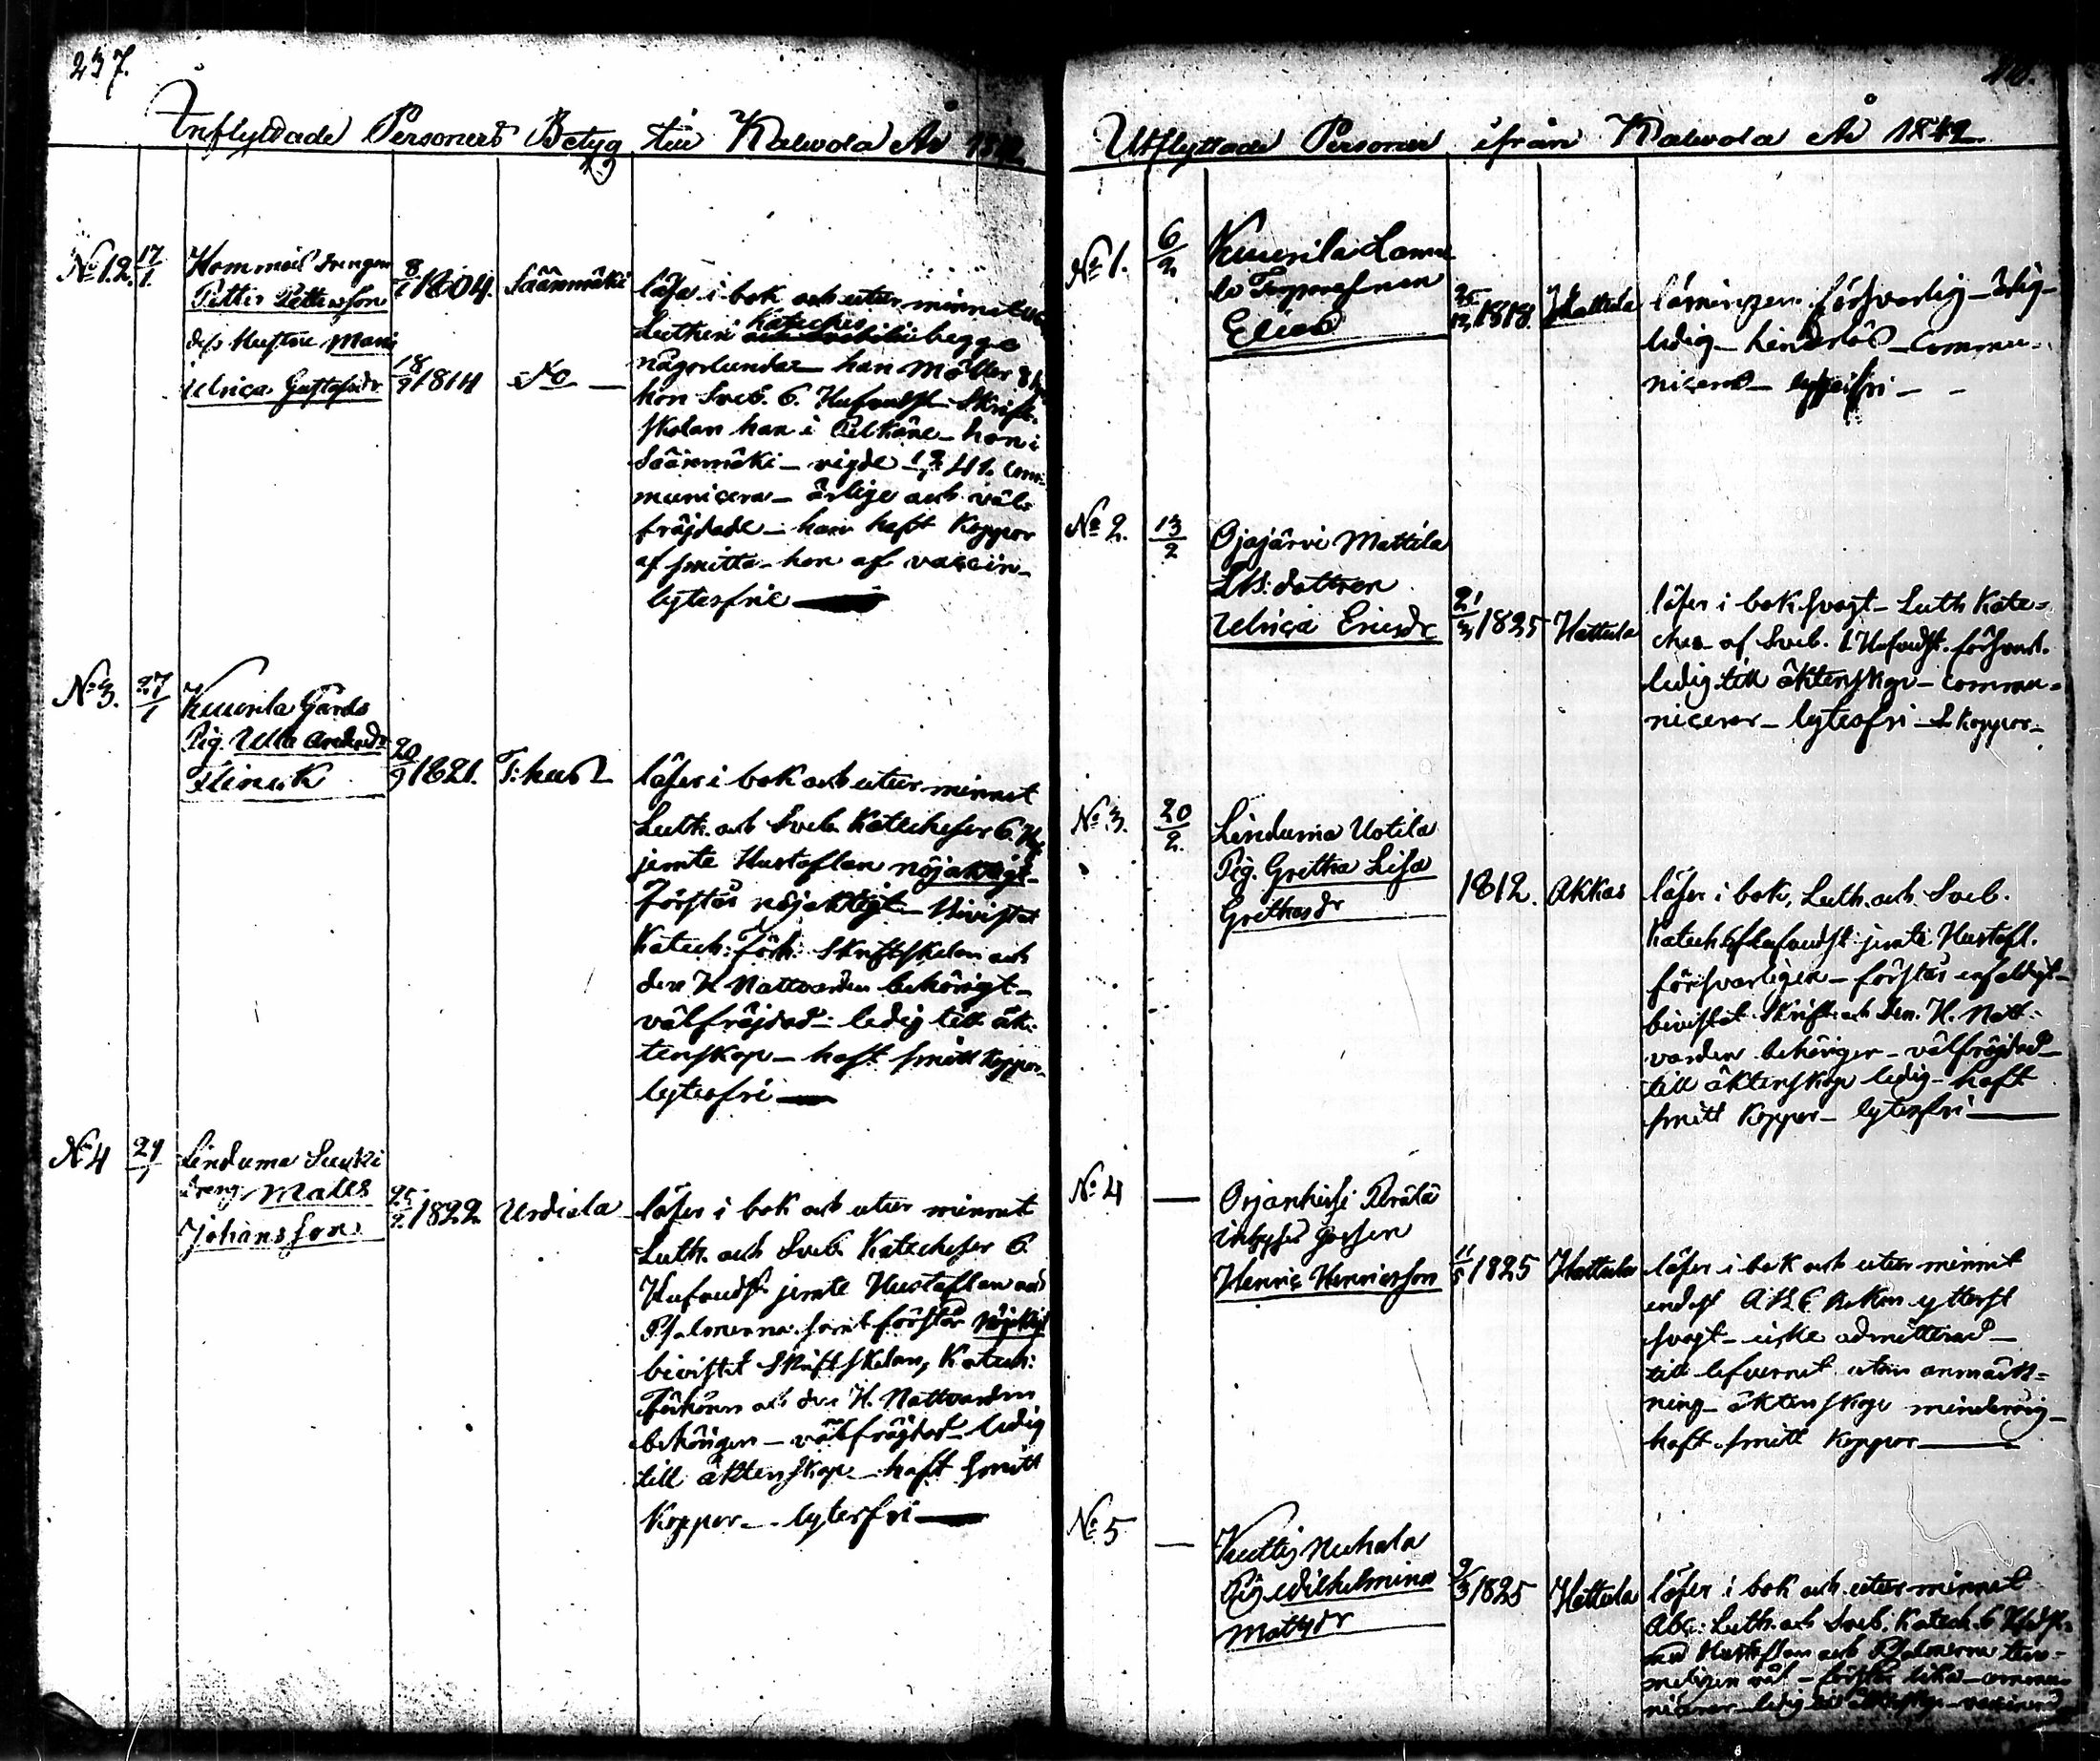 237.
Inflyttade Personers Betyg till Kalvola År 1842.
No 1.2. 17/1.
Hommais drengen
Petter Pettersson
dess Hustru Maria
Ulrica Gustafsdr
8/1 1804. Säänmäki
18/9 1814 Do
läsa i bok och utur minnet
Lutheri Kateches begge
någorlunda – han Möller
hon Sveb. 6. Hufvudst. Skrift-
skolan han i Pelkäne – hon i
Säänmäki – vigde 41. com-
municera – ärlige och väl-
fräjdade – han haft Koppor
af smitta – hon af vaccin –
lytesfrie
No 3. 27/1
Kuurila Gårds
Pig. Ulla
Flinck
20/9 1821. T:hus L
läser i bok och utur minnet
Luth. och Sveb. Katecheser 6.
jemte Hustaflan nöjaktigt –
Förstår nöjaktigt – Bivistat
Katech: Förh: Skriftskolan och
den H. Nattvarden behörigt –
välfräjdad – ledig till äk-
tenskap – haft smitt Koppor –
lytesfri
No 4
Linduma Suuki
dreng Matts
Johansson
25/2 1822 Urdiala
läser i bok och utur minnet
Luth. och Sveb. Katecheser 6.
Hufvudst. jemte Hustaflan och
Psalmerna samt förstår nöjaktigt
bivistat Skriftskolan, Katech:
Förhören och den H. Nattvarden
behörigen – välfräjdad – ledig
till äktenskap – haft smitt
Koppor – lytesfri
Utflyttade Personer ifrån Kalvola År 1842.
No 1. 6/2
Kuurila
Elias
1818. Hattula
försvarlig – ärlig –
ledig – hinderlös – commu-
nicerad – lytesfri –
No 2. 13/2
Ojajärvi Mattila
dottren
Ulrica Ericsdr
21/3 1825 Hattula
läser i bok svagt – Luth Kate-
ches af Sveb. 1 Hufvudst. försvarl.
ledig till äktenskap – commu-
nicerar – lytesfri – Koppor –
No 3. 20/2.
Linduma Uotila
Pig. Gretha Lisa
Grethasdr
1812. Akkas
läser i bok, Luth. och Sveb.
Katech. Hufvudst. jemte Hustafl.
försvarligen – förstår enfaldigt –
bivistat Skrift. och den H. Natt-
varden behörigen – välfräjdad –
till äktenskap ledig – haft
smitt Koppor – lytesfri
No 4 —
Orjanhirsi Perälä
inhyses gossen
Henric Henricsson
11/5 1825 Hattula
läser i bok och utur minnet
endast ytterst
svagt – icke admitterad –
till lefvernet utan anmärk-
ning – äktenskap minderårig –
haft smitt Koppor
No 5 —
Nuhala
Pig Wilhelmina
Mattsdr
9/3 1825 Hattula
läser i bok och utur minnet
Abc: Luth. och Sveb. Katech. 6
Hustaflan och Psalmerna
väl – förstår lika – commu-
nicerar – ledig till äktenskap – vaccinerad